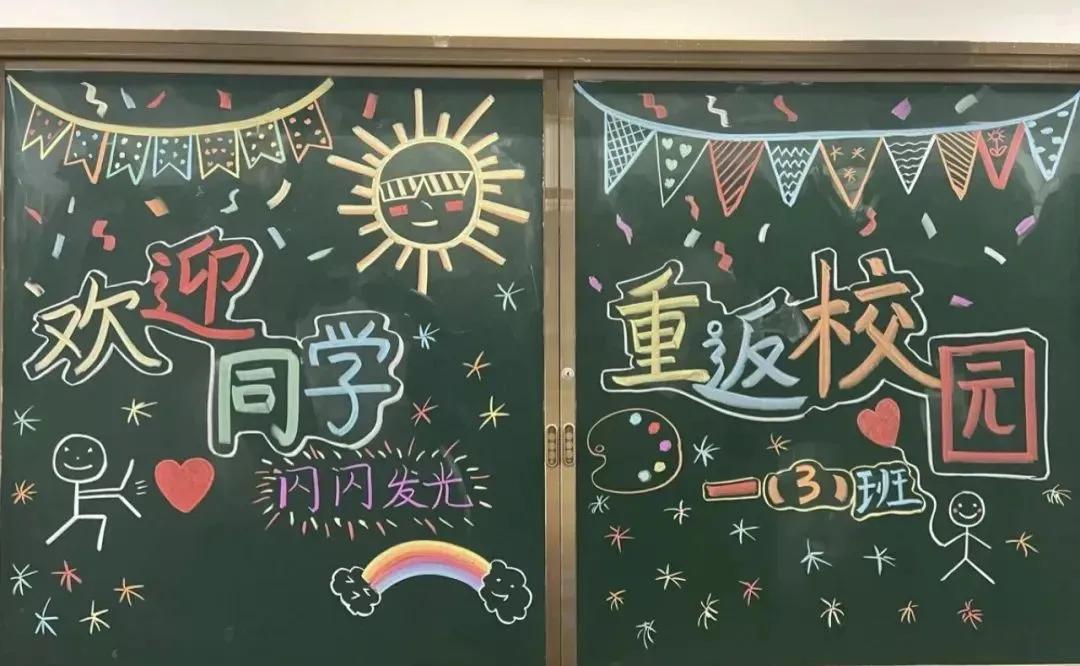 欢迎
同学
闪闪发光
重返校园
一(3)班